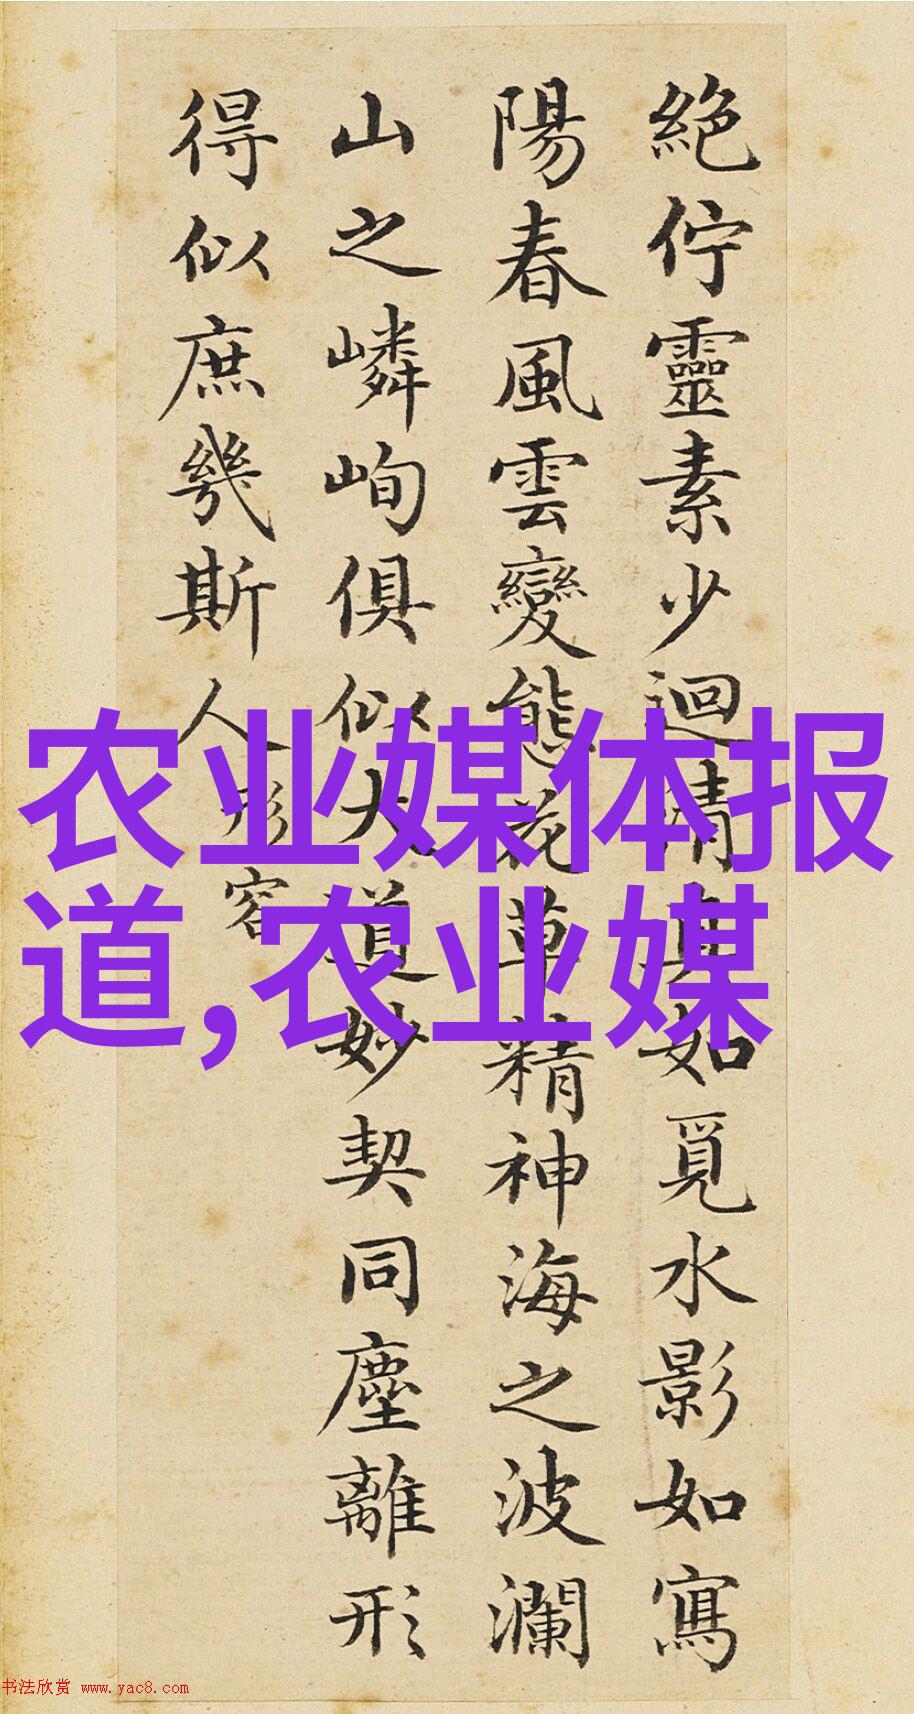 絕佇靈素少迴清真如覓水影如寫
陽春風雲變態花草精神海之波瀾
山之嶙峋俱似大道妙契同塵離形
得似庶幾斯人
形容
农业媒体报
道,农业媒
书法欣赏 www.yac8.com